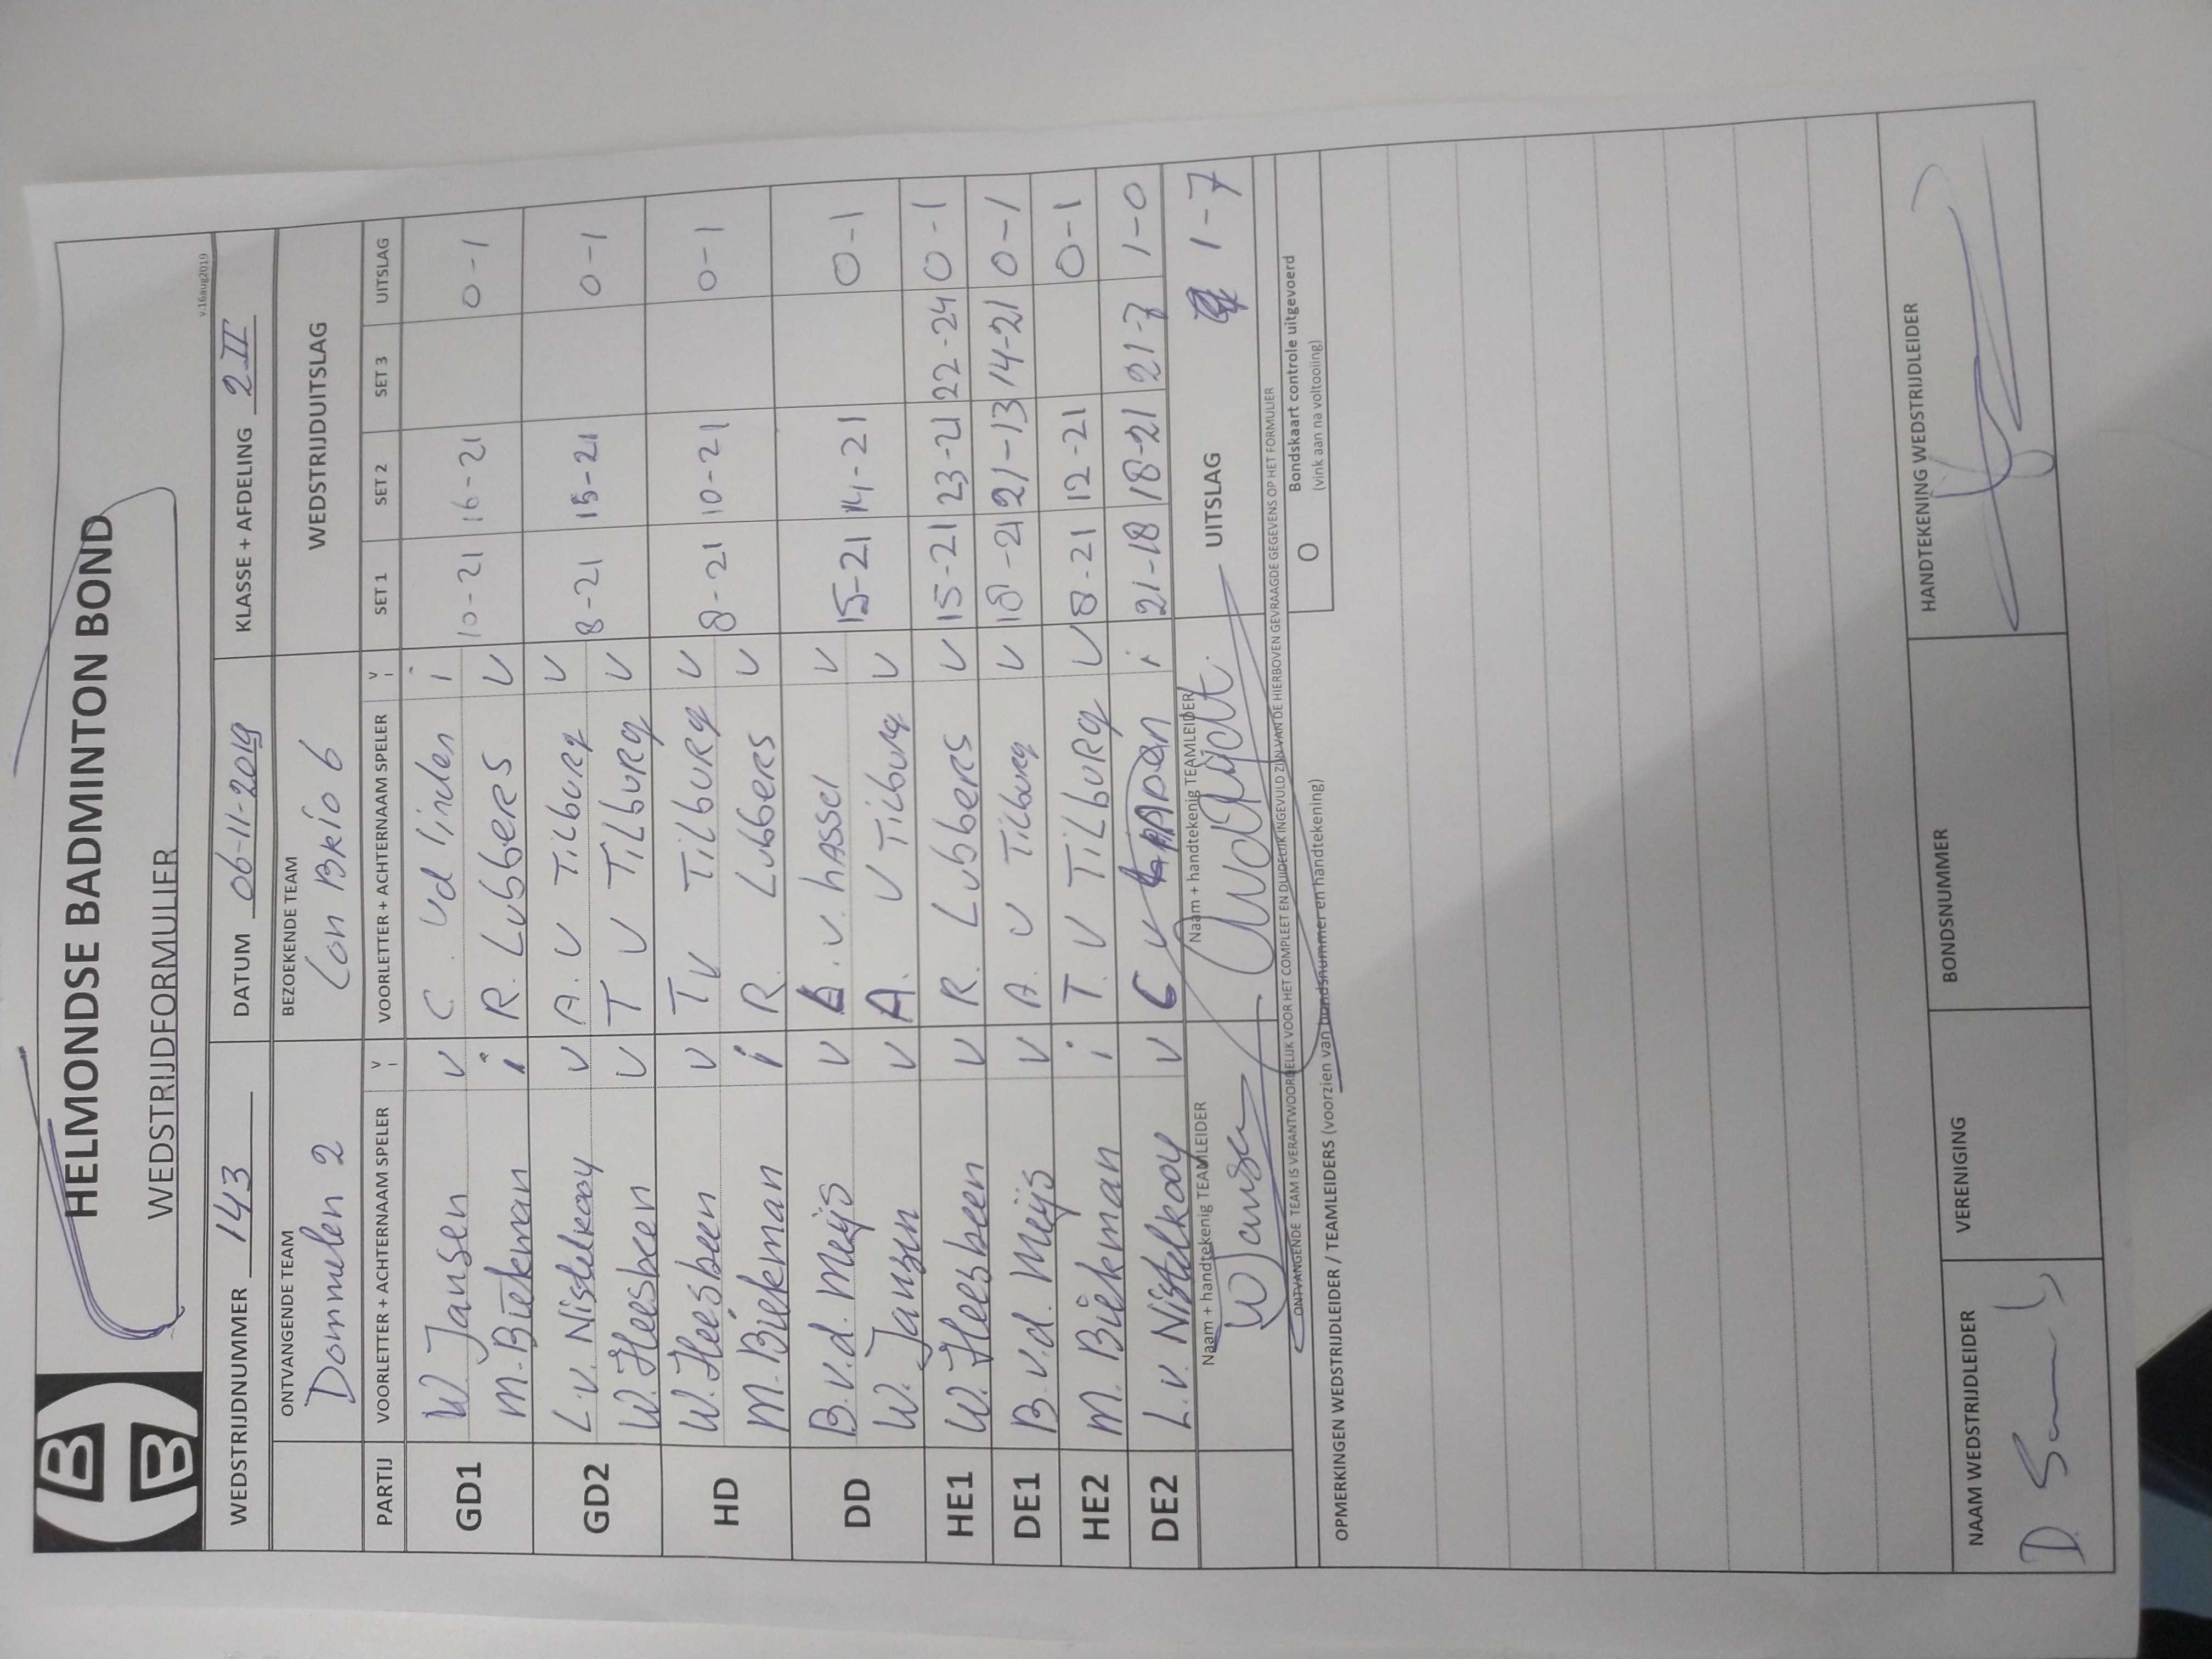 HELMONDSE BADMINTON BOND
WEDSTRIJDFORMULIER
v.16aug2019
WEDSTRIJDNUMMER 143 DATUM 06-11-2019 KLASSE + AFDELING 2 II
ONTVANGENDE TEAM BEZOEKENDE TEAM WEDSTRIJDUITSLAG
Dommelen 2 Con Brio 6
PARTIJ VOORLETTER + ACHTERNAAM SPELER V I VOORLETTER + ACHTERNAAM SPELER V I SET 1 SET 2 SET 3 UITSLAG
GD1 W. Jansen v C. vd linden i 10-21 16-21 0-1
M. Biekman i R. Lubbers v
GD2 L.v. Nistelkooy v A. v Tilburg v 8-21 15-21 0-1
W. Heesbeen v T v Tilburg v
HD W. Heesbeen v T v Tilburg v 8-21 10-21 0-1
M. Biekman i R. Lubbers v
DD B.v.d. Meijs v v. hassel v 15-21 14-21 0-1
W. Jansen v A. v Tilburg v
HE1 W. Heesbeen v R. Lubbers v 15-21 23-21 22-24 0-1
DE1 B.v.d. Meijs v A. v Tilburg v 18-21 21-13 14-21 0-1
HE2 M. Biekman i T. v Tilburg v 8-21 12-21 0-1
DE2 L.v. Nistelkooy v C v i 21-18 18-21 21-7 1-0
Naam + handtekenig TEAMLEIDER Naam + handtekenig TEAMLEIDER UITSLAG 1-7
W Jansen
ONTVANGENDE TEAM IS VERANTWOORDELIJK VOOR HET COMPLEET EN DUIDELIJK INGEVULD ZIJN VAN DE HIERBOVEN GEVRAAGDE GEGEVENS OP HET FORMULIER
OPMERKINGEN WEDSTRIJDLEIDER / TEAMLEIDERS (voorzien van bondsnummer en handtekening)
O Bondskaart controle uitgevoerd
(vink aan na voltooiing)
NAAM WEDSTRIJDLEIDER VERENIGING BONDSNUMMER HANDTEKENING WEDSTRIJDLEIDER
D